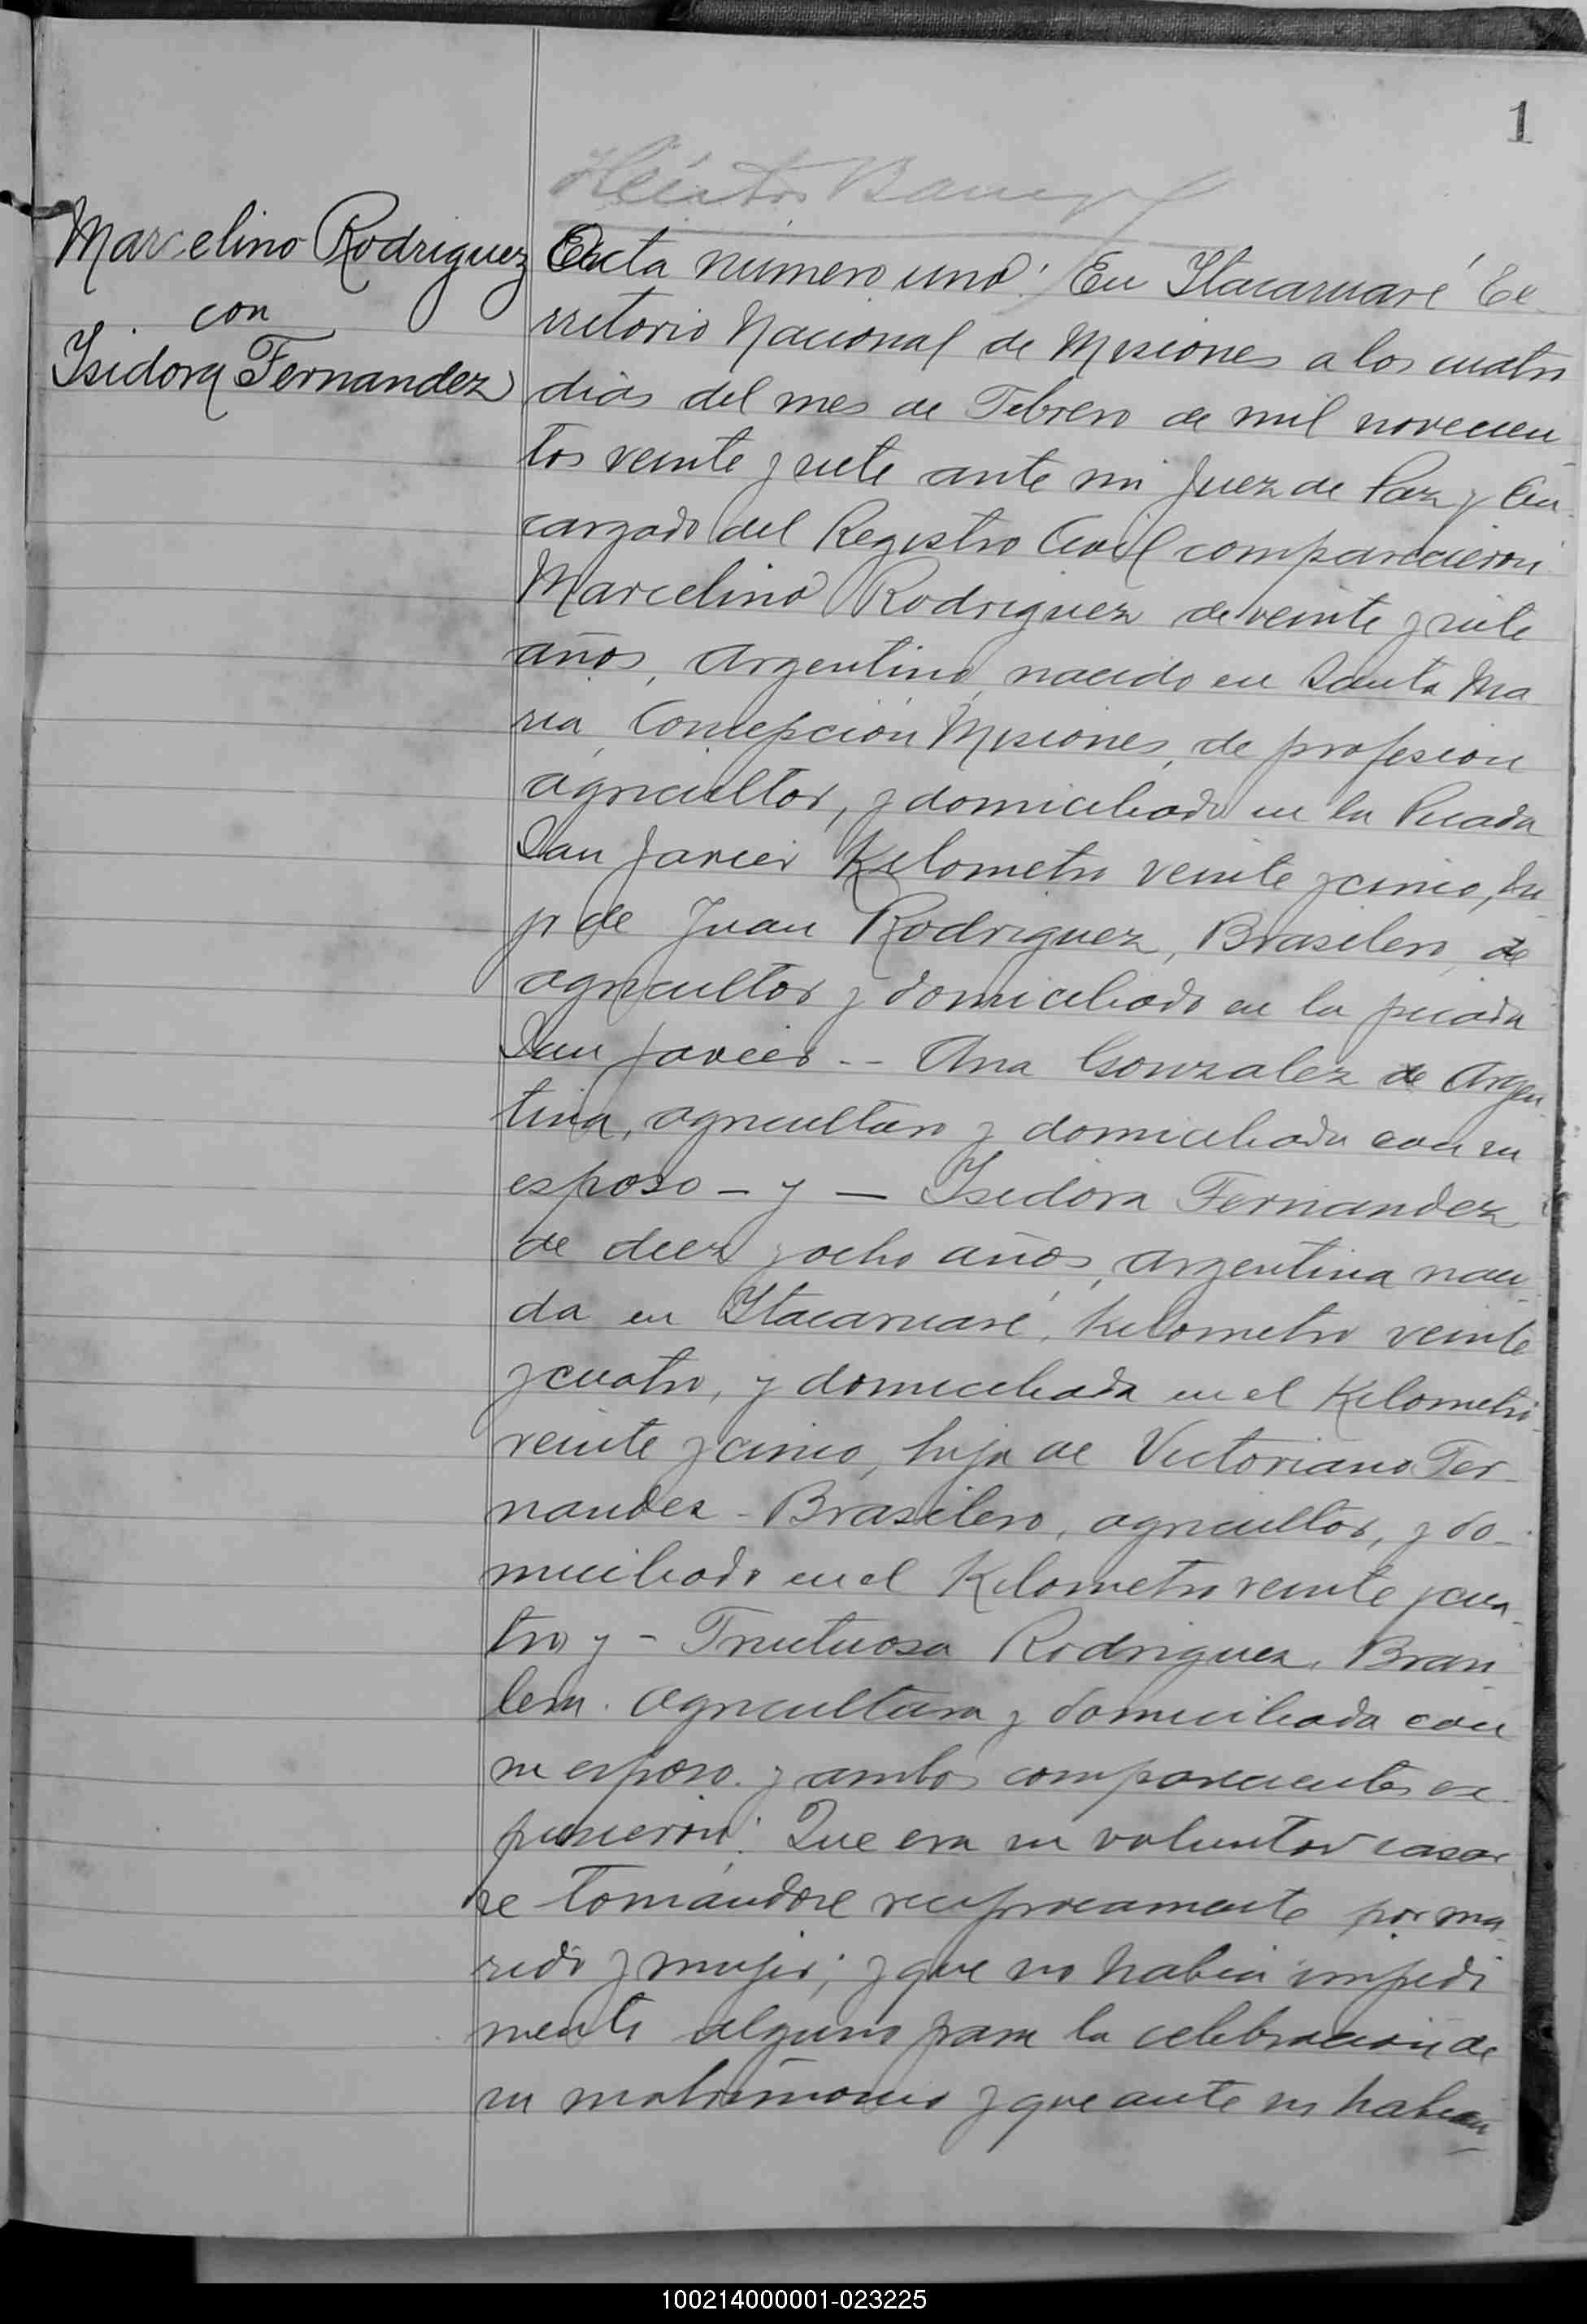 1
Marcelino Rodriguez
con
Isidora Fernandez
Acta número uno: En Itacaruaré Te
rritorio Nacional de Misiones a los cuatro
dias del mes de Febrero de mil novecien
tos veinte y siete ante mi Juez de Paz y En
cargado del Registro Civil comparecieron
Marcelino Rodriguez de veinte y siete
años, argentino, nacido en Santa Ma
ria, Concepción Misiones, de profesion
agricultor, y domiciliado en la Picada
San Javier Kilometro veinte y cinco, hi
jo de Juan Rodriguez, Brasilero, de
agricultor y domiciliado en la picada
San Javier -- Ana Gonzalez de Argen
tina, agricultora y domiciliada con su
esposo - y — Isidora Fernandez
de diez y ocho años, argentina naci
da en Itacaruaré, Kilometro veinte
y cuatro, y domiciliada en el Kilometro
veinte y cinco, hija de Victoriano Fer
nandez - Brasilero, agricultor, y do-
miciliado en el Kilometro veinte y cua
tro y - Fructuosa Rodriguez, Brasi
lera. agricultura y domiciliada con
su esposo. y ambos comparecientes ex
pusieron: Que era su voluntad casar
se tomandose reciprocamente por ma
rido y mujer; y que no habia impedi
mento alguno para la celebracion de
su matrimonio y que ante si habian
100214000001-023225